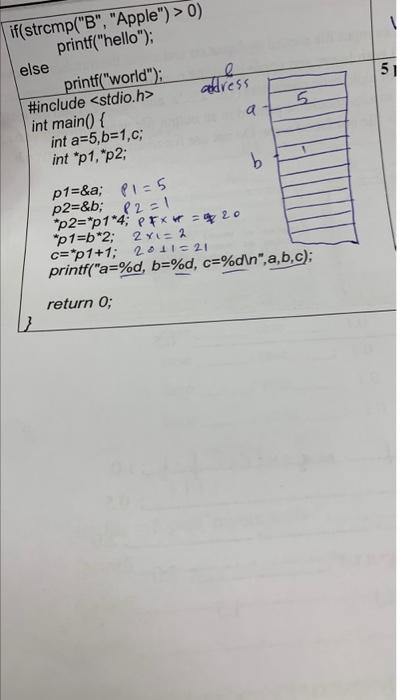 if(strcmp("B", "Apple") > 0)
printf("hello");
else
printf("world");
address
5
#include <stdio.h>
a
5
int main() {
int a=5,b=1,c;
int *p1,*p2;
b
1
p1=&a; P1 = 5
p2=&b; P2 = 1
*p2=*p1*4; = 20
*p1=b*2; 2x1 = 2
c=*p1+1; 20+1=21
printf("a=%d, b=%d, c=%d\n",a,b,c);
return 0;
}